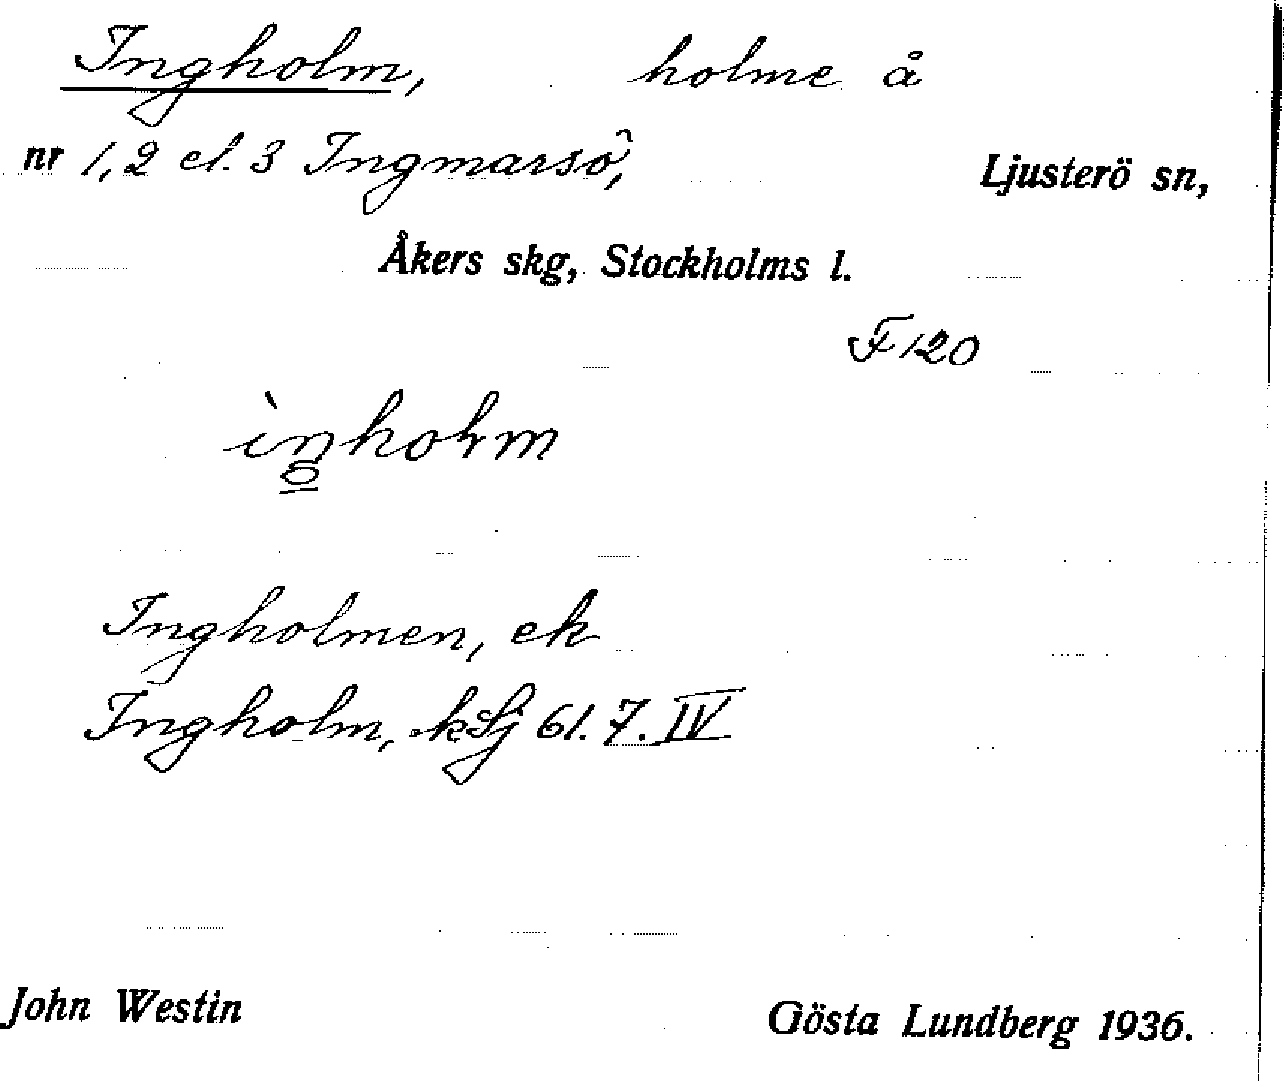 Ingholm, holme å
nr 1,2 el. 3 Ingmarsö, Ljusterö sn,
Åkers skg, Stockholms l.
F 120
ìŋholm
Ingholmen, ek
Ingholm, 61. 7. IV
John Westin Gösta Lundberg 1936.